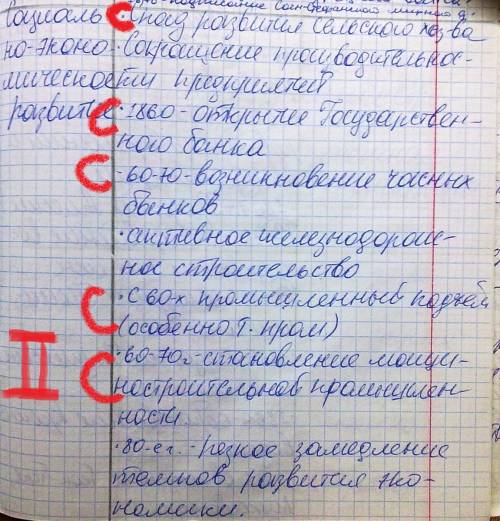 Социаль
· Спад развития сельского хоз-ва
но-эконо
· Сокращение производительнос-
мическое
ти предприятий
развитие
· 1860 - открытие Государствен-
ного банка
· 60-ю - возникновение частных
банков
· активное железнодорож-
ное строительство
· С 60-х промышленный подъём
(особенно т. пром)
· 60-70г - становление маши-
ностроительной промышлен-
ности.
· 80-е г. - резкое замедление
темпов развития эко-
номики.
С
С
С
С
С
II